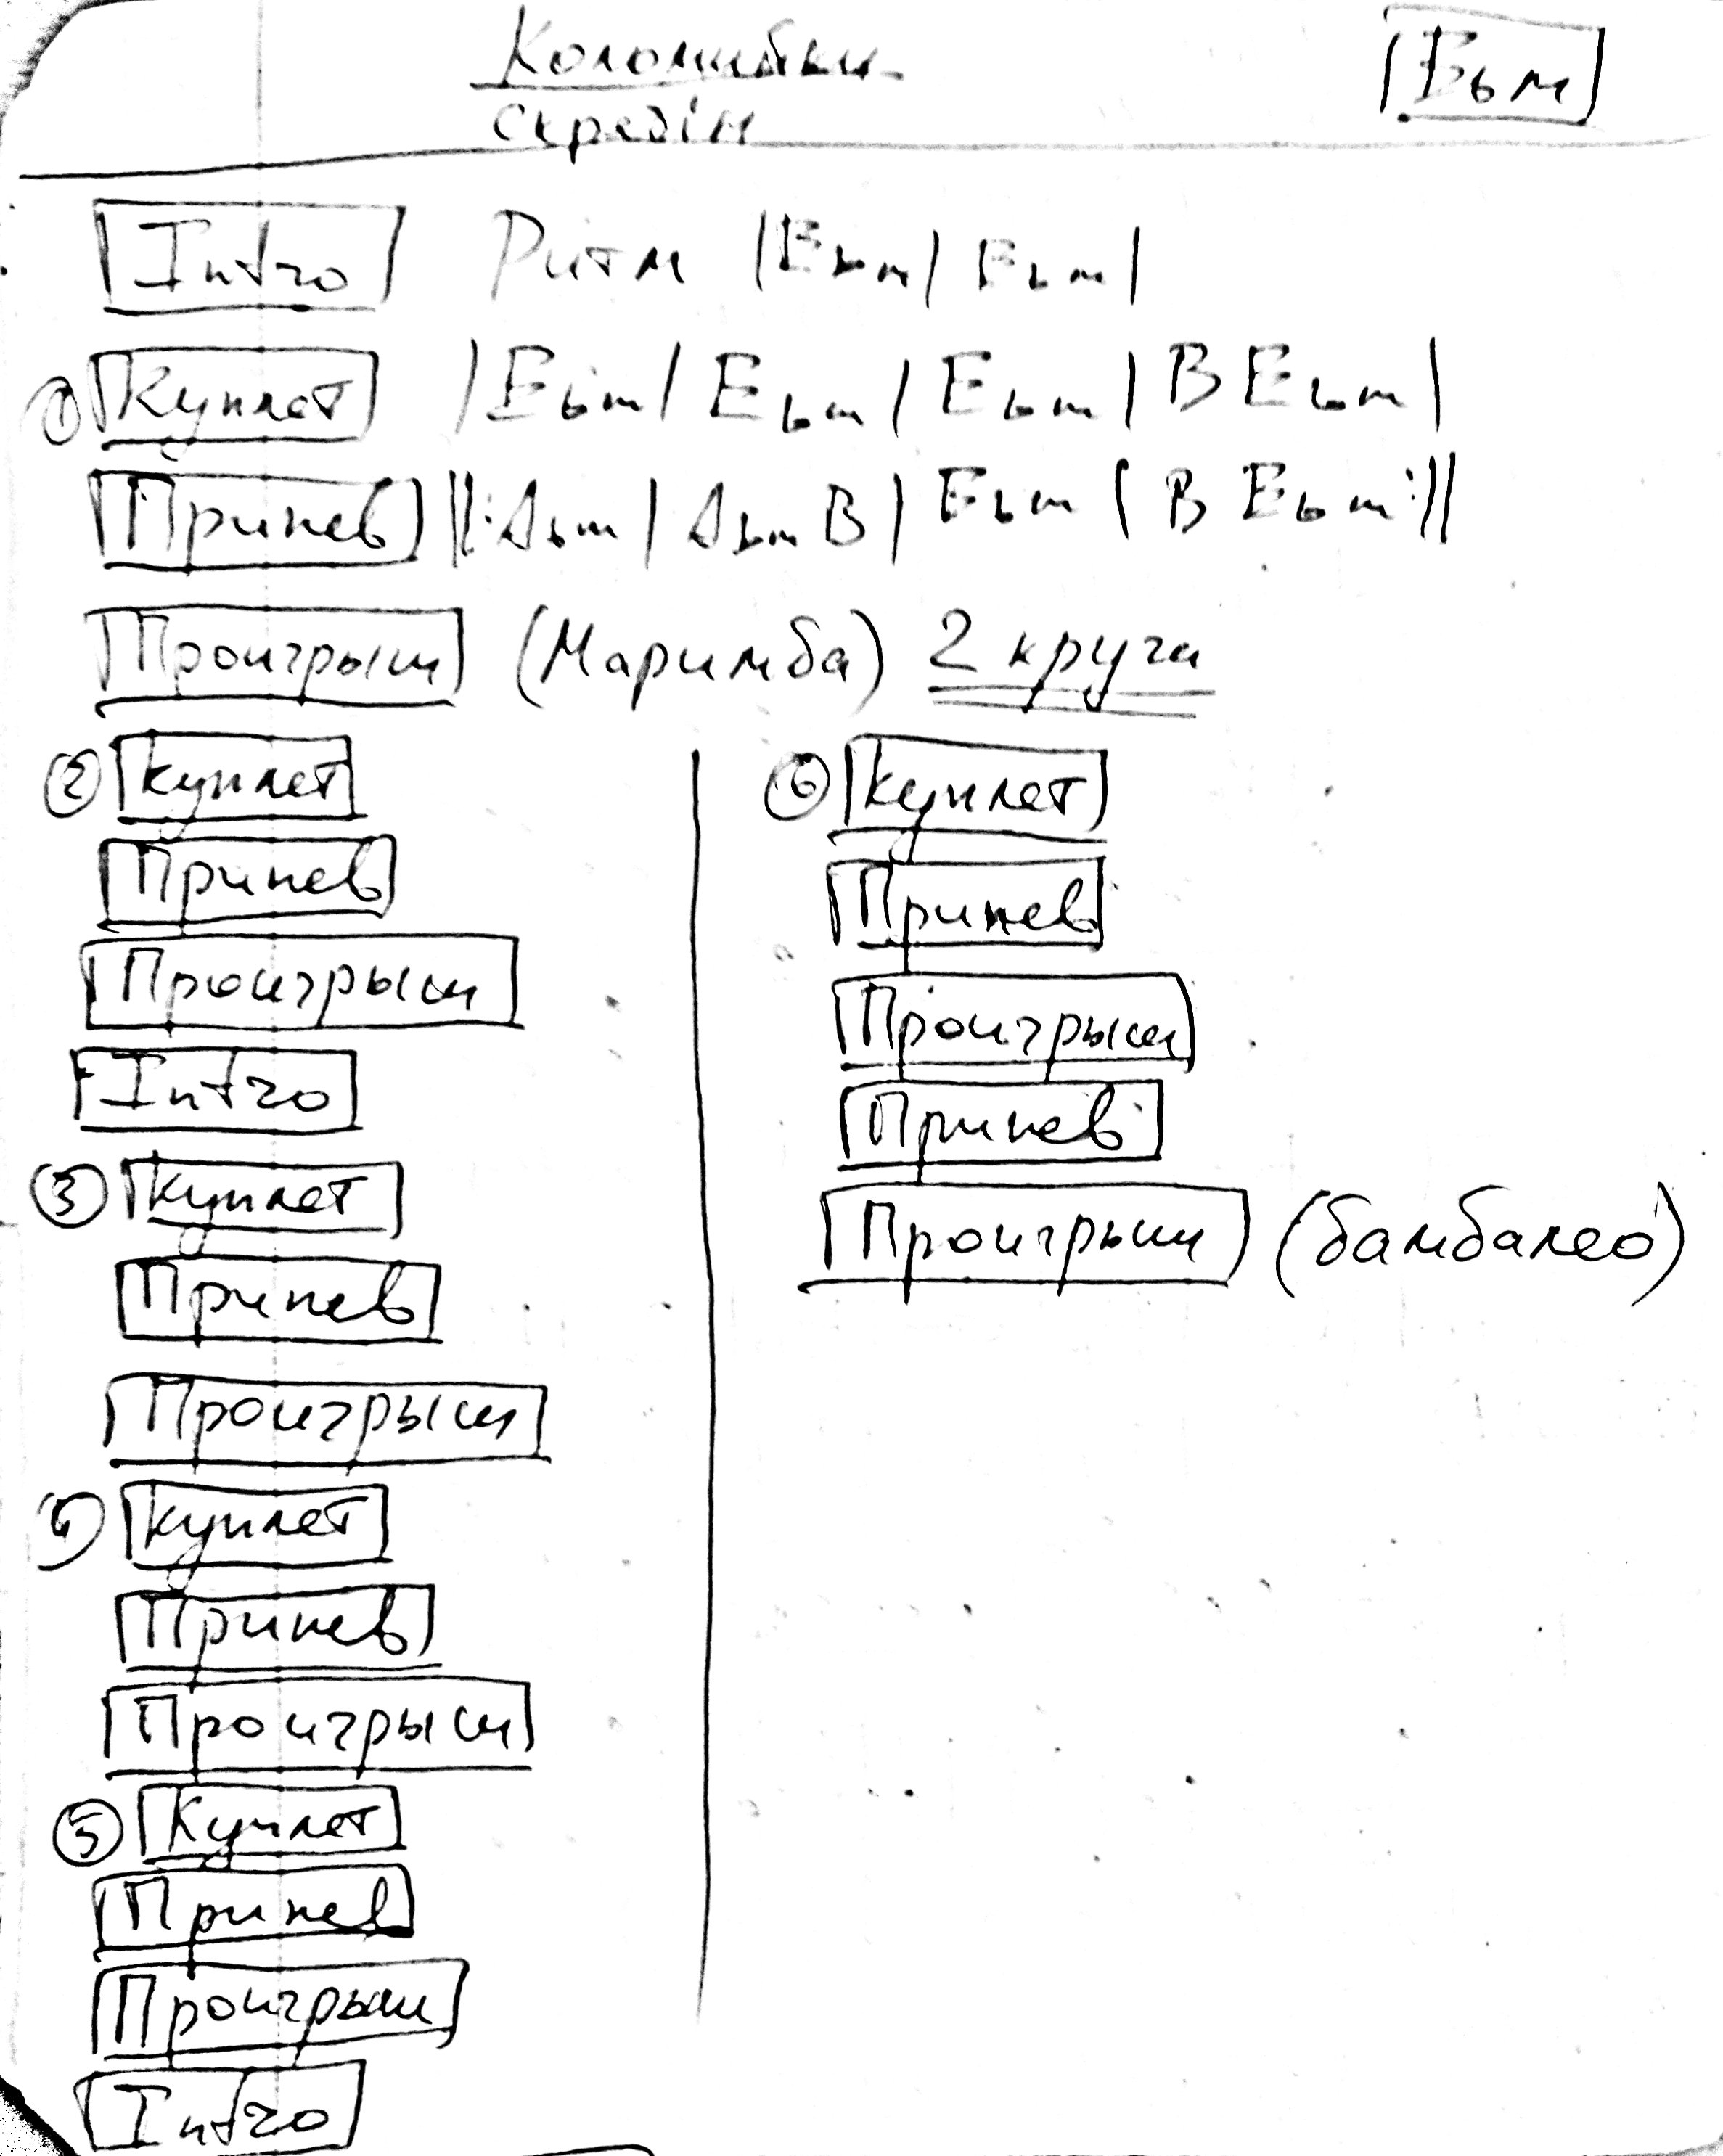 Коломийки
скрезіж
Ebm
Intro Ритм | Ebm | Ebm |
① Куплет | Ebm | Ebm | Ebm | B Ebm |
Припев ||: Abm | Abm B | Ebm | B Ebm :||
Проигрыш (Маримба) 2 круга
② Куплет
Припев
Проигрыш
Intro
③ Куплет
Припев
Проигрыш
④ Куплет
Припев
Проигрыш
⑤ Куплет
Припев
Проигрыш
Intro
⑥ Куплет
Припев
Проигрыш
Припев
Проигрыш (бамбалео)